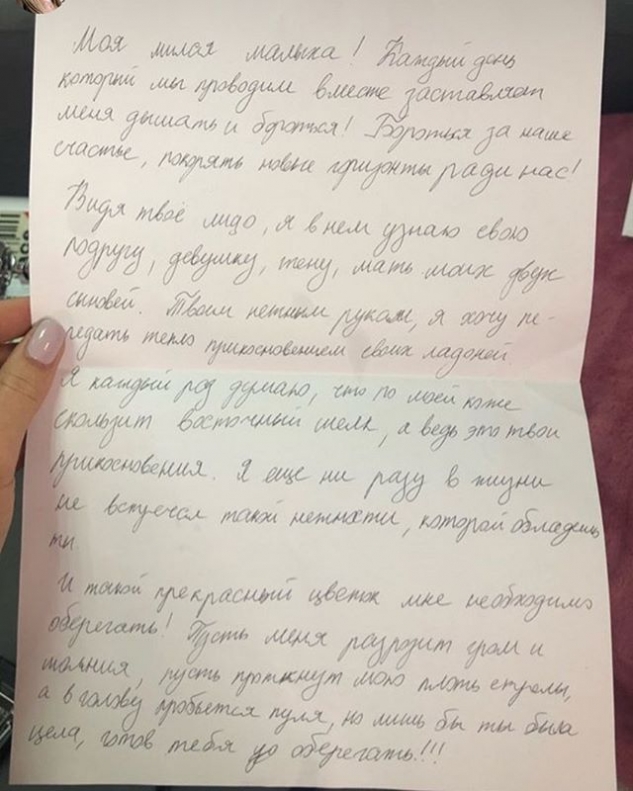 Моя милая малыха! Каждый день
который мы проводим вместе заставляет
меня дышать и бороться! Бороться за наше
счастье, покорять новые горизонты ради нас!
Видя твоё лицо, я в нем узнаю свою
подругу, девушку, жену, мать моих двух
сыновей. Твоим нежным рукам, я хочу пе-
редать тепло прикосновением своих ладоней
Я каждый раз думаю, что по моей коже
скользит восточный шелк, а ведь это твои
прикосновения. Я еще ни разу в жизни
не встречал такой нежности, которой обладаешь
ты
И такой прекрасный цветок мне необходимо
оберегать! Пусть меня разразит гром и
молния, пусть проткнут мою плоть стрелы,
а в голову пробьется пуля, но лишь бы ты была
цела, готов тебя оберегать!!!